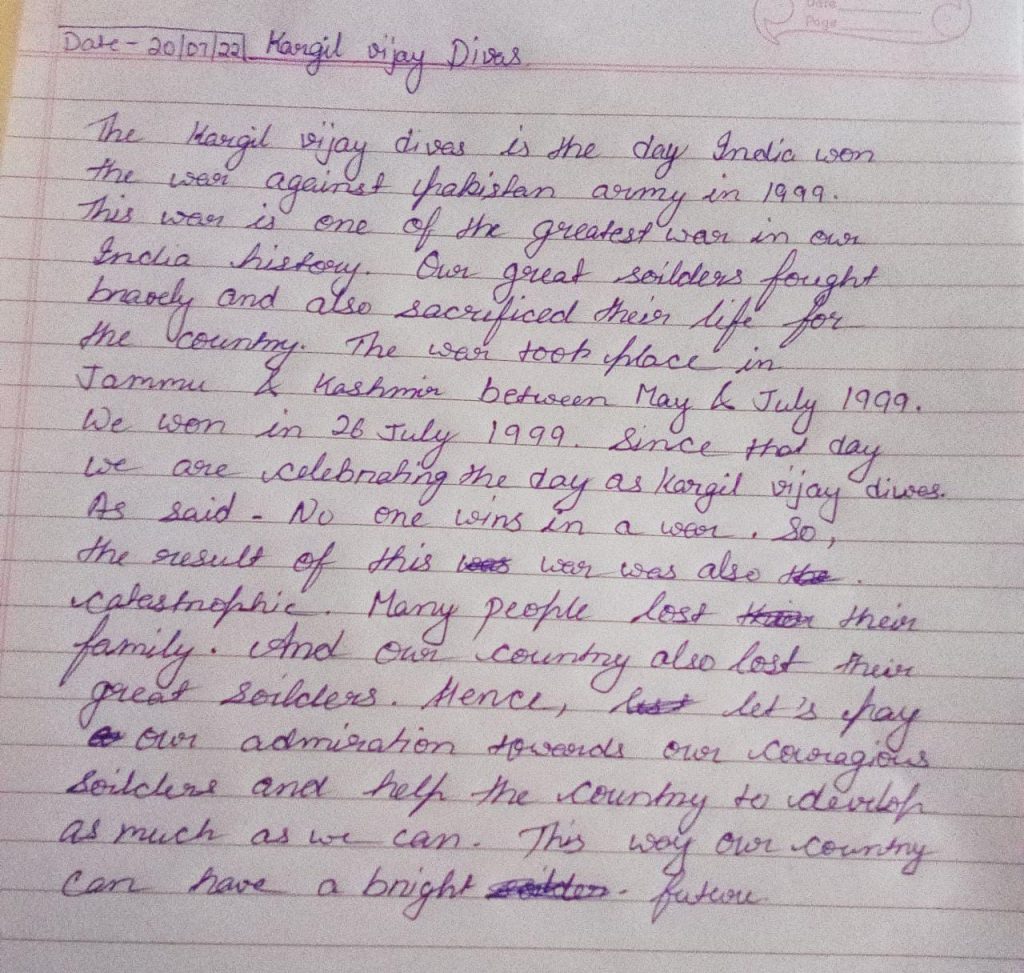 Date
Page
Date - 20/07/22 Kargil vijay Divas
The Kargil vijay divas is the day India won
the war against pakistan army in 1999.
This war is one of the greatest war in our
India history. Our great soilders fought
bravely and also sacrificed their life for
the country. The war took place in
Jammu & Kashmir between May & July 1999.
We won in 26 July 1999. Since that day
we are celebrating the day as Kargil vijay diwas.
As said - No one wins in a war. So,
the result of this war was also
catestrophic. Many people lost their
family. And our country also lost their
great soilders. Hence, let's pay
our admiration towards our couragious
soilders and help the country to develop
as much as we can. This way our country
can have a bright future.